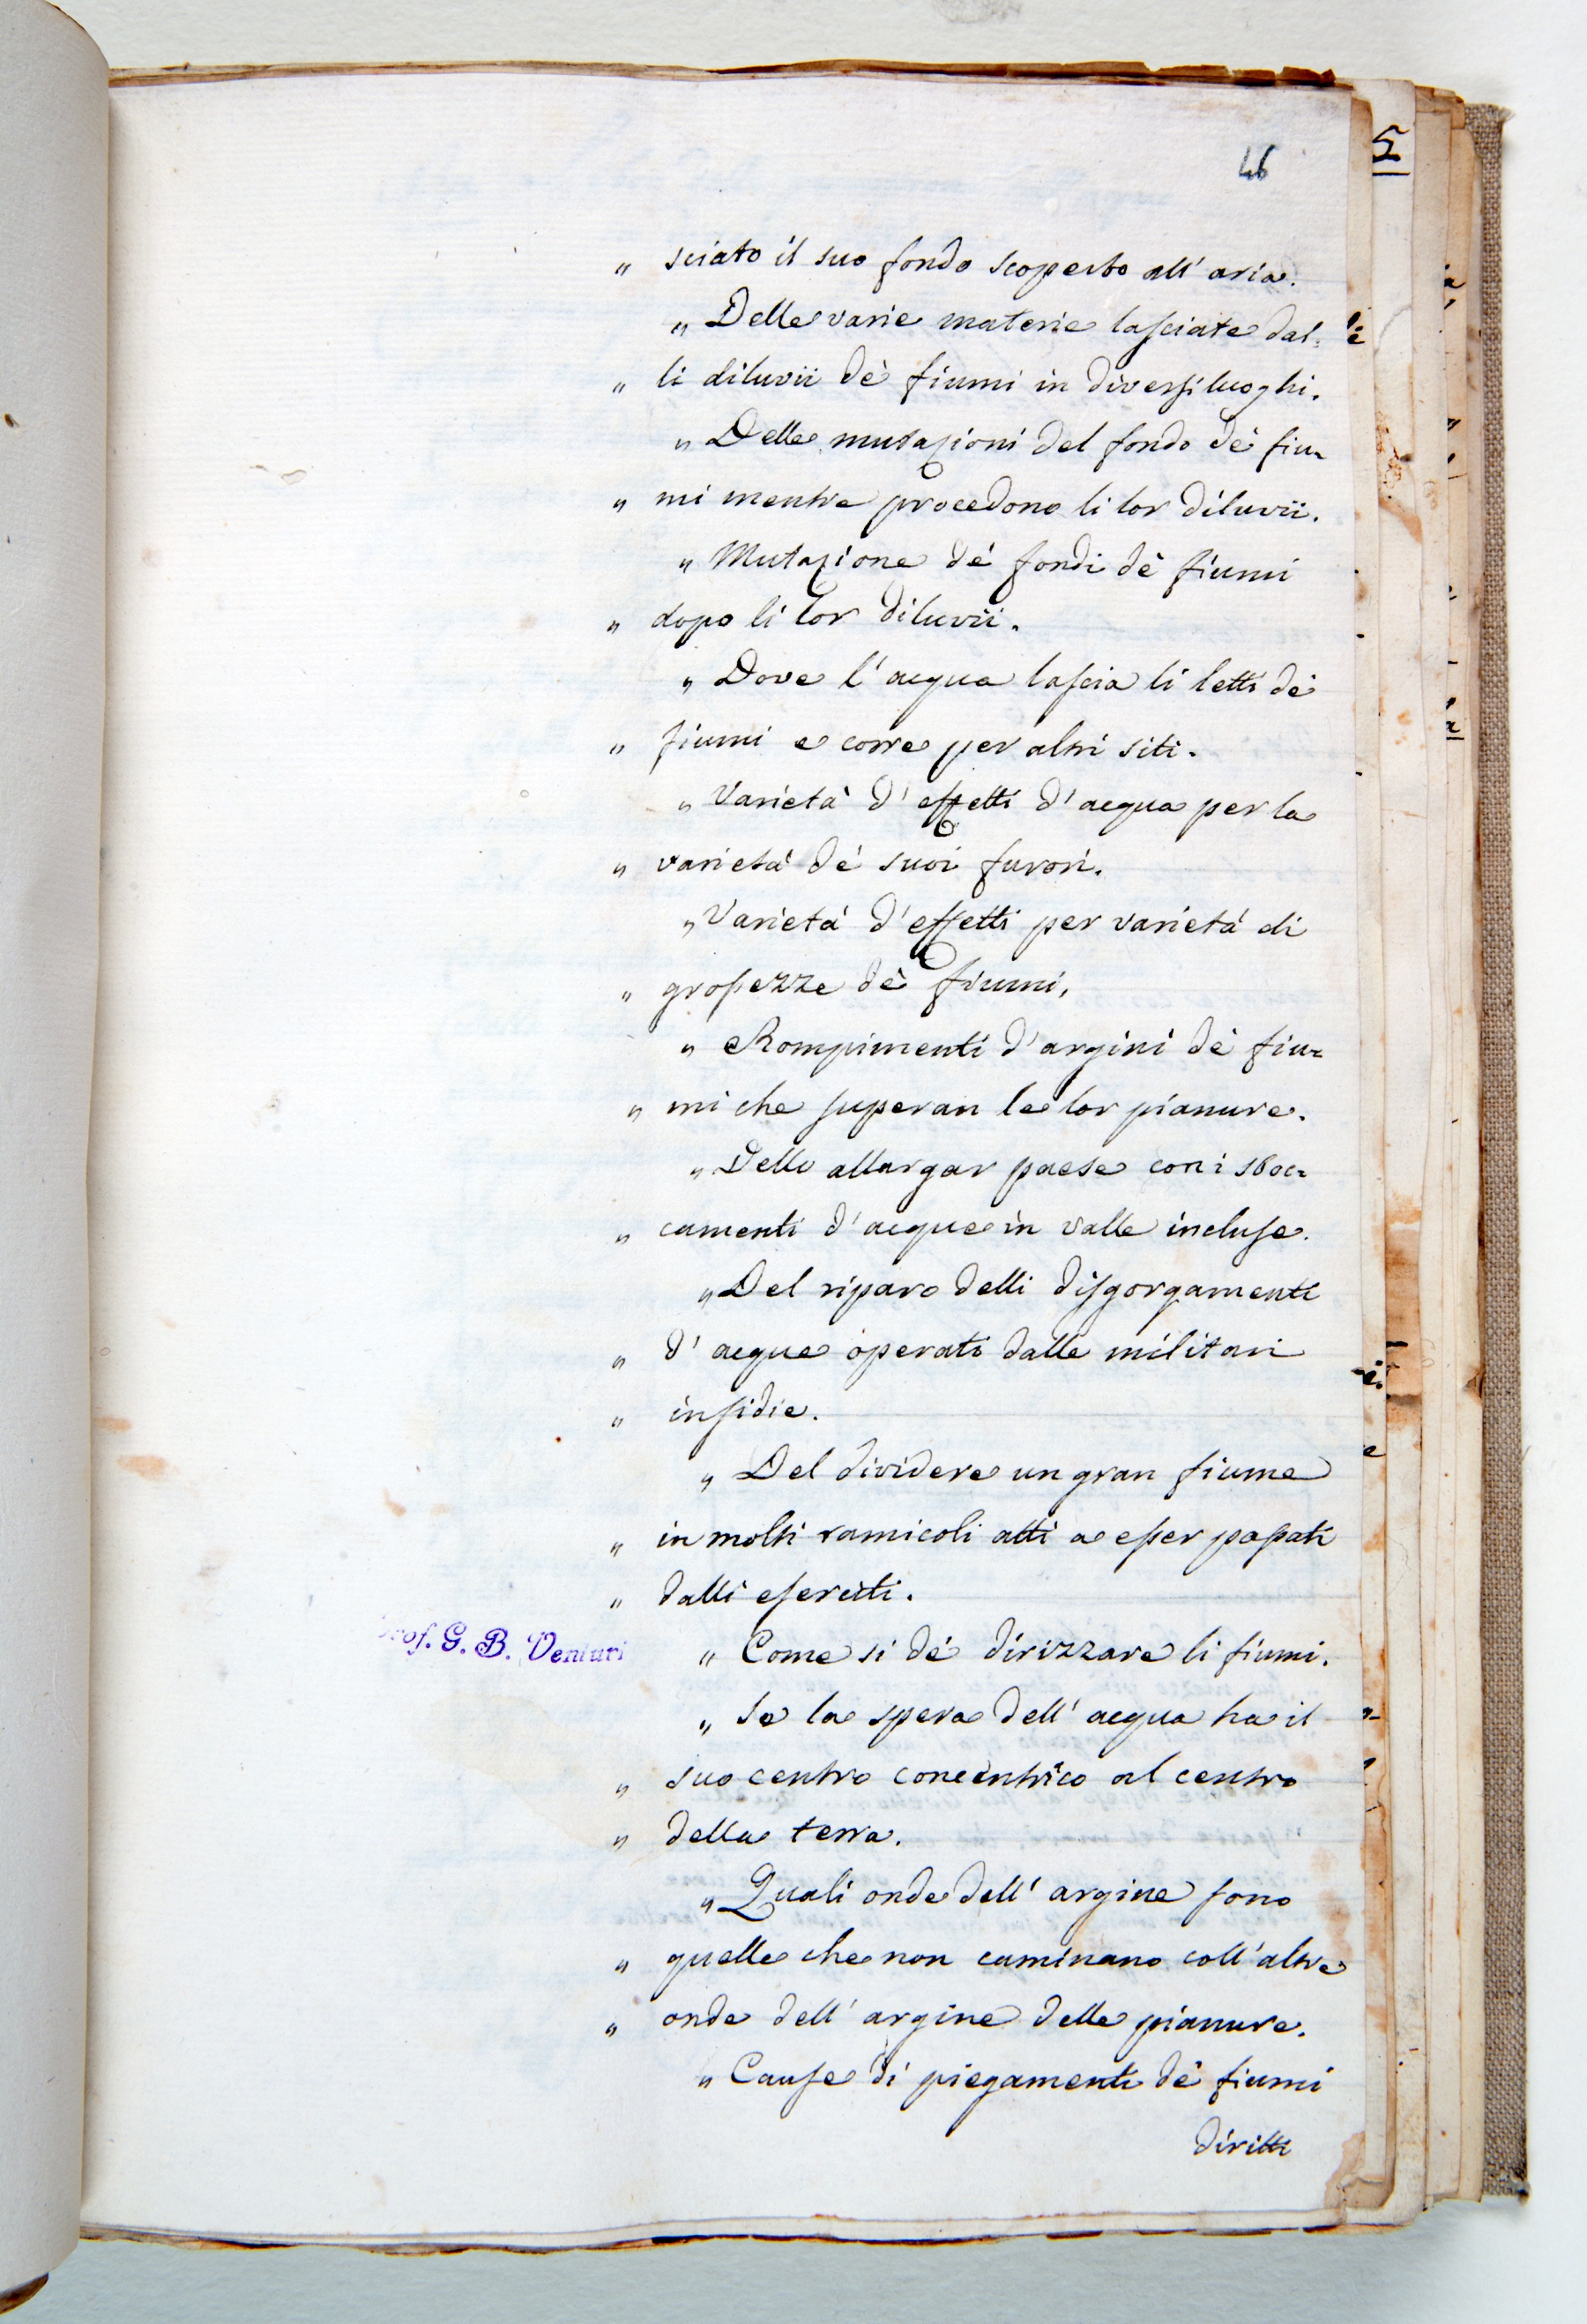 46
5
„ sciato il suo fondo scoperto all' aria.
„ Delle varie materie lasciate dal=
„ li diluvii dè fiumi in diversi luoghi.
„ Delle mutazioni del fondo dè fiu=
„ mi mentre procedono li lor diluvii.
„ Mutazione dè fondi dè fiumi
„ dopo li lor diluvii.
„ Dove l' acqua lascia li letti dè
„ fiumi e corre per altri siti.
„ Varietà d' effetti d' acqua per la
„ varietà dè suoi furori.
„ Varietà d' effetti per varietà di
„ grossezze dè fiumi,
„ Rompimenti d' argini dè fiu=
„ mi che superan le lor pianure.
„ Dello allargar paese con i sboc=
„ camenti d' acque in valle incluse.
„ Del riparo delli disgorgamenti
„ d' acque operati dalle militari
„ insidie.
„ Del dividere un gran fiume
„ in molti ramicoli atti a esser passati
„ dalli eserciti.
Prof. G. B. Venturi
„ Come si dè dirizzare li fiumi.
„ Se la spera dell' acqua ha il
„ suo centro concèntrico al centro
„ della terra.
„ Quali onde dell' argine sono
„ quelle che non caminano coll' altre
„ onde dell' argine delle pianure.
„ Cause di piegamenti dè fiumi
diritti